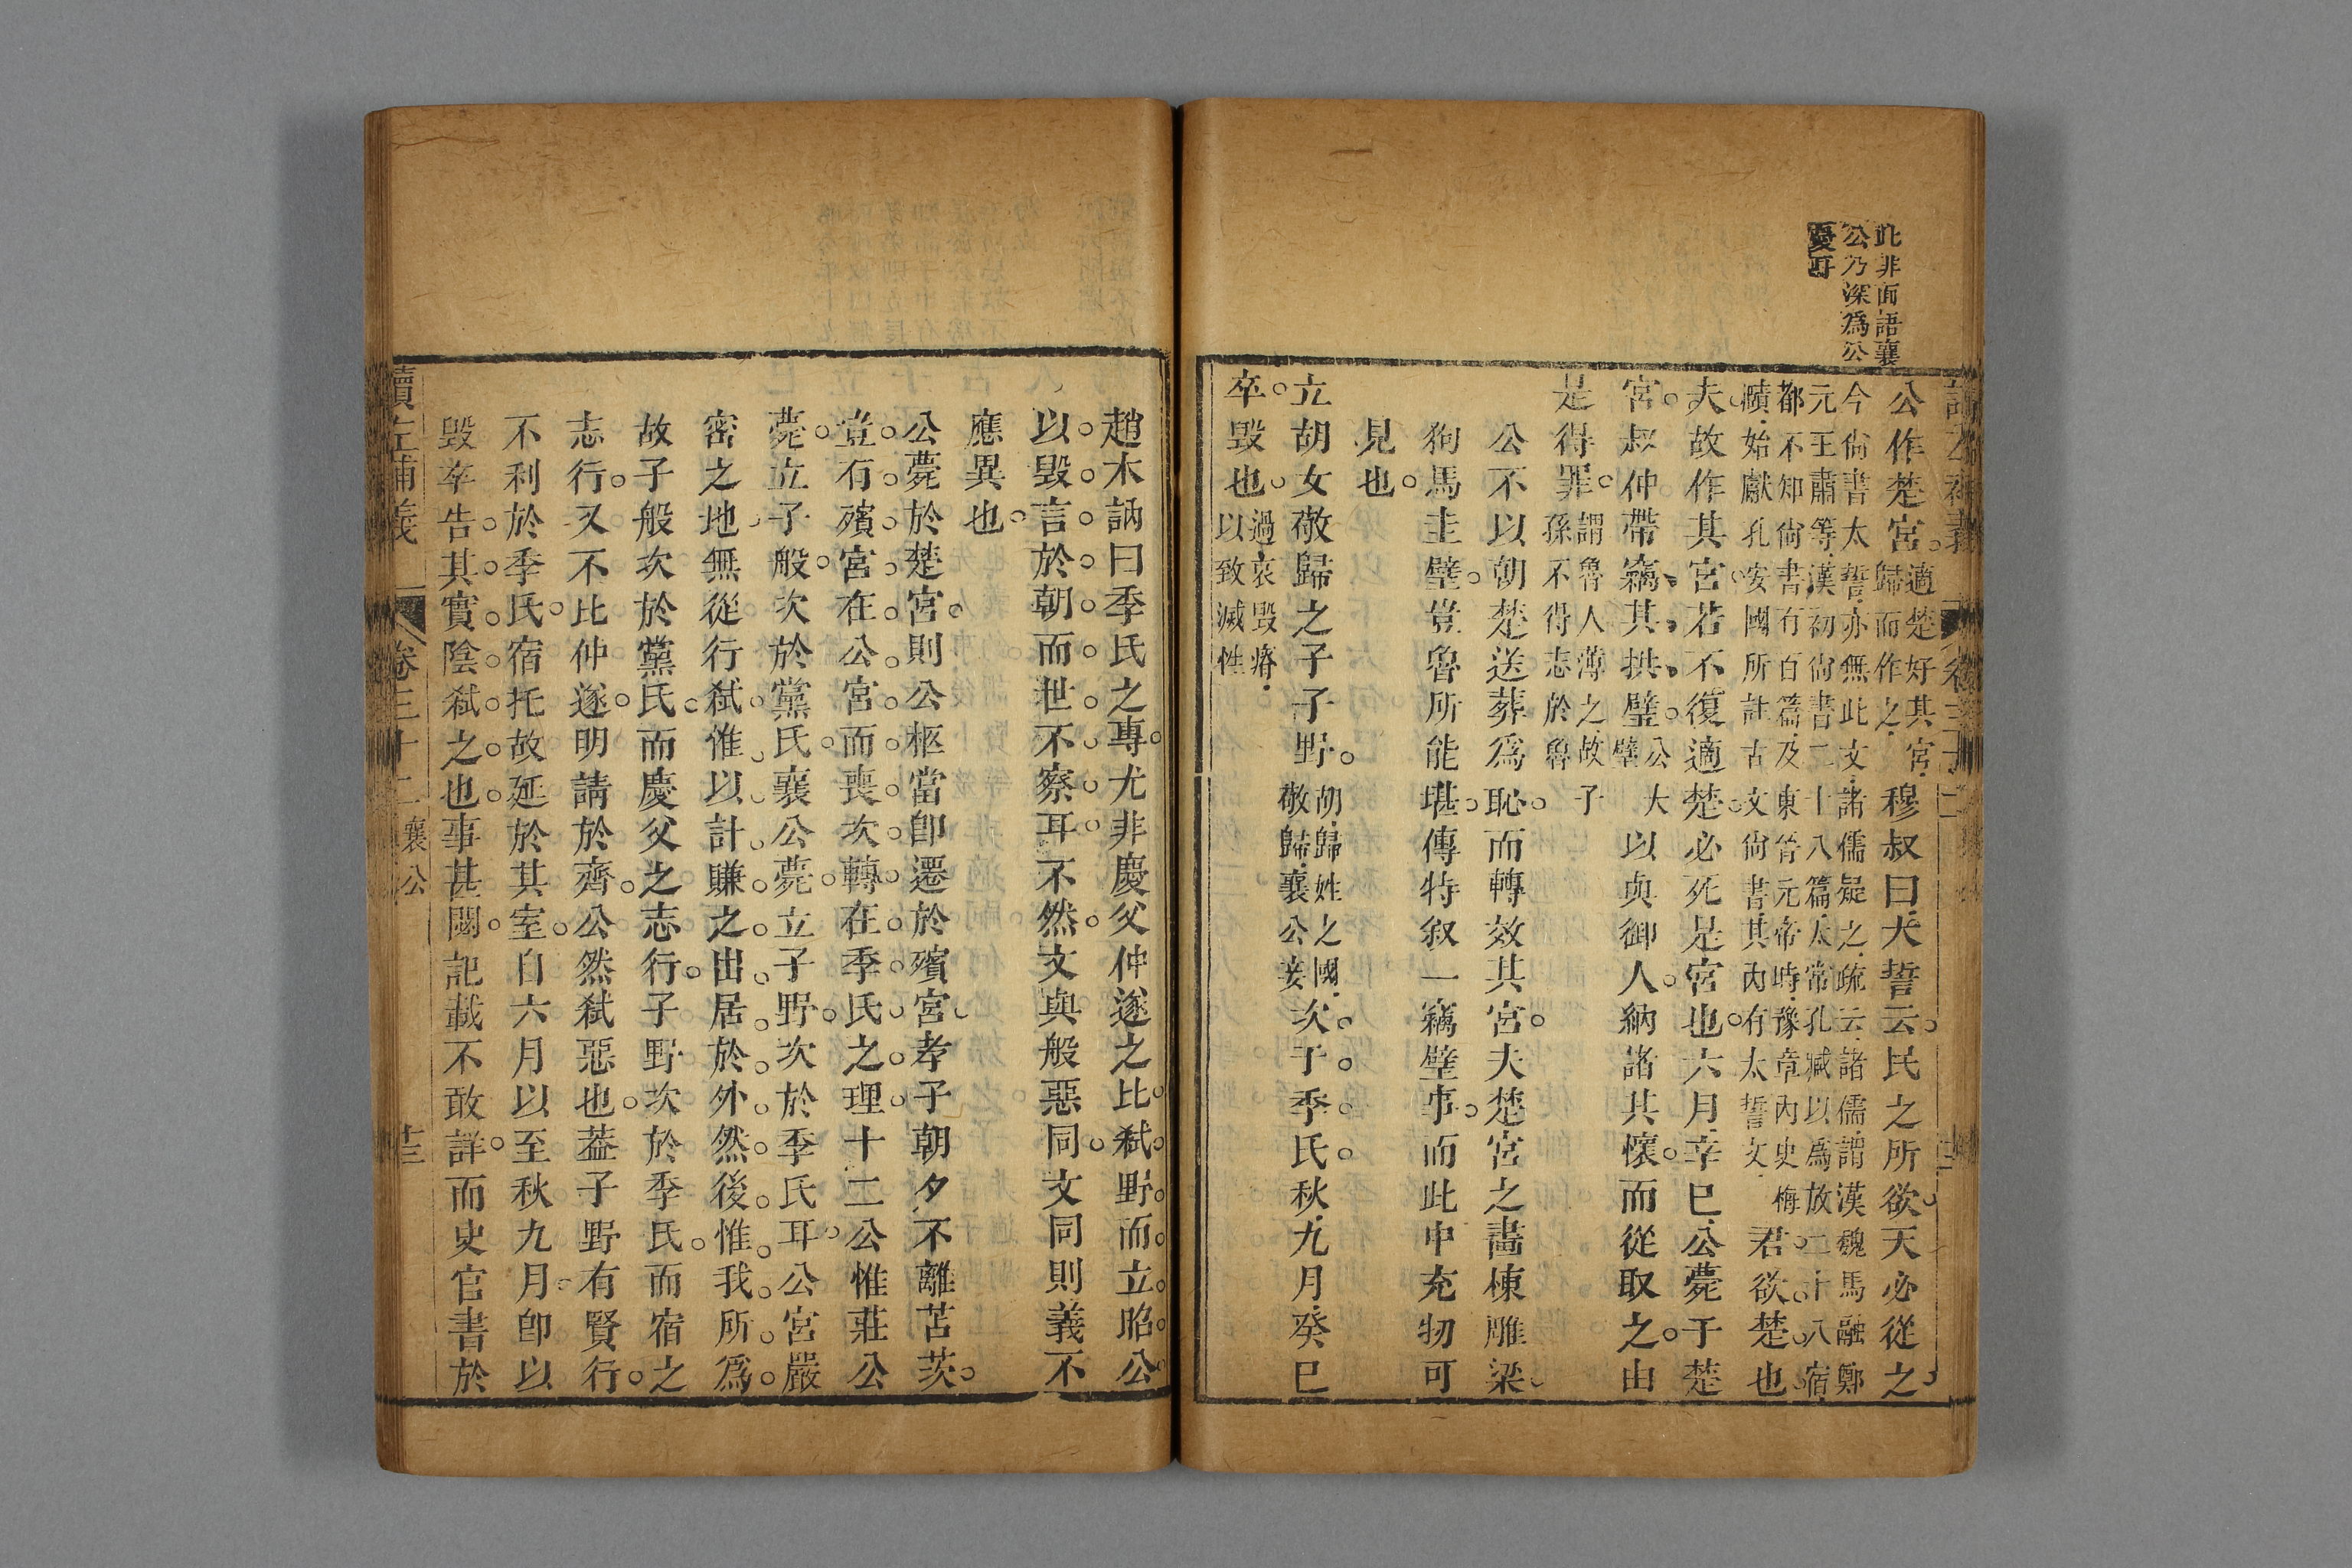 此非面語襄
公乃深爲公
憂耳
公作楚宮。適楚好其宮歸而作之穆叔曰大誓云民之所欲天必從之
今尙書太誓亦無此文諸儒疑之疏云諸儒謂漢魏馬融鄭
元王肅等漢初尙書二十八篇太常孔臧以爲放二十八宿
都不知尙書有百篇及東晉元帝時豫章內史梅
賾始獻孔安國所註古文尙書其內有太誓文君欲楚也
夫故作其宮若不復適楚必死是宮也六月辛巳公薨于楚
宮叔仲帶竊其拱璧公大璧以與御人納諸其懷而從取之由
是得罪謂魯人薄之故子孫不得志於魯
公不以朝楚送葬爲恥而轉效其宮夫楚宮之畵棟雕梁
狗馬圭璧豈魯所能堪傳特叙一竊璧事而此中充牣可
見也
立胡女敬歸之子子野胡歸姓之國敬歸襄公妾次于季氏秋九月癸巳
卒毀也過哀毀瘠以致滅性
趙木訥曰季氏之專尤非慶父仲遂之比弑野而立昭公
以毀言於朝而世不察耳不然文與般惡同文同則義不
應異也
公薨於楚宮則公柩當卽遷於殯宮孝子朝夕不離苫茨
豈有殯宮在公宮而喪次轉在季氏之理十二公惟莊公
薨立子般次於黨氏襄公薨立子野次於季氏耳公宮嚴
密之地無從行弑惟以計賺之出居於外然後惟我所爲
故子般次於黨氏而慶父之志行子野次於季氏而宿之
志行又不比仲遂明請於齊公然弑惡也葢子野有賢行
不利於季氏宿托故延於其室自六月以至秋九月卽以
毀卒告其實陰弑之也事甚閟記載不敢詳而史官書於
讀左補義 卷三十二 襄公 十三